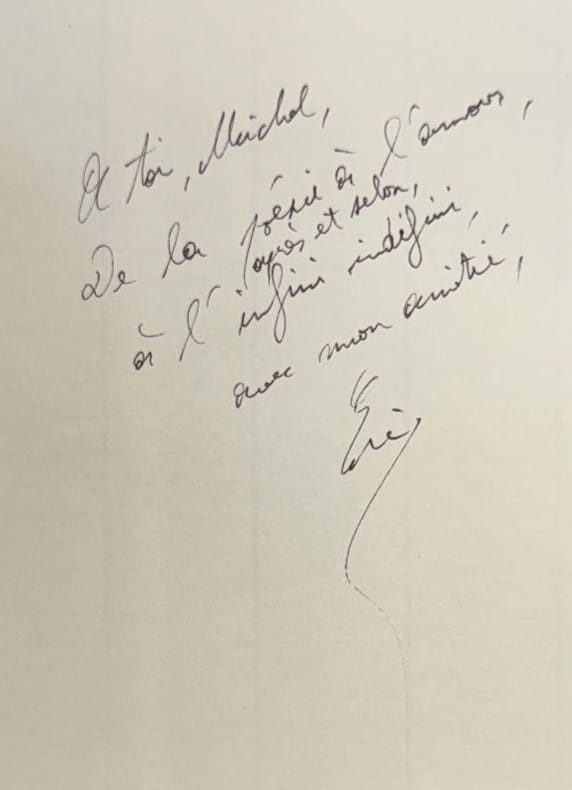 A toi, Michel,
De la poésie à l'amour,
après et selon,
à l'infini indéfini,
avec mon amitié,
Eric